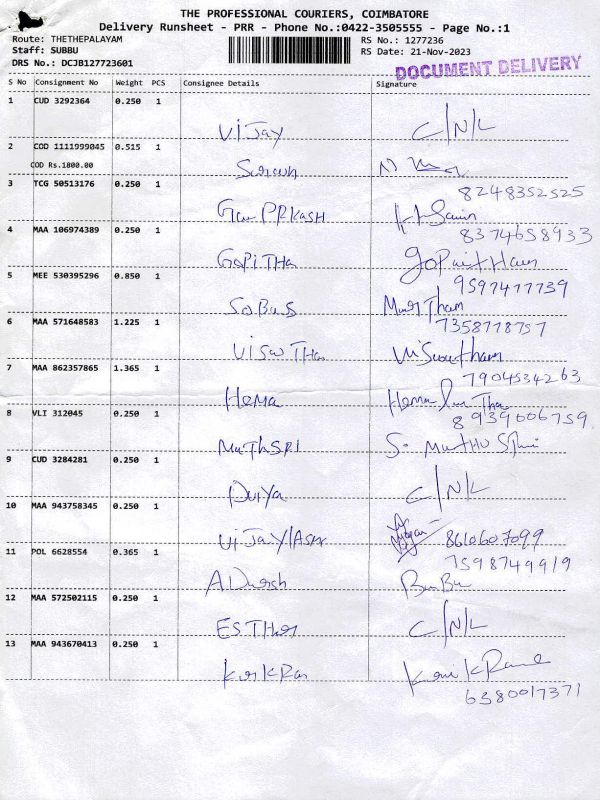 THE PROFESSIONAL COURIERS, COIMBATORE
Delivery Runsheet - PRR - Phone No.:0422-3505555 - Page No.:1
Route: THETHEPALAYAM RS No.: 1277236
Staff: SUBBU RS Date: 21-Nov-2023
DRS No.: DCJB127723601
DOCUMENT DELIVERY
S No Consignment No Weight PCS Consignee Details Signature
1 CUD 3292364 0.250 1
Vijay C/N/L
2 COD 1111999045 0.515 1
COD Rs.1800.00
3 TCG 50513176 0.250 1
8248352525
PRKASH
4 MAA 106974389 0.250 1
8374658933
GOPITHa
5 MEE 530395296 0.850 1
9597477739
6 MAA 571648583 1.225 1
7358778757
7 MAA 862357865 1.365 1
7904534263
Hema
8 VLI 312045 0.250 1
8939606759
MuThSRI
9 CUD 3284281 0.250 1
C/N/L
10 MAA 943758345 0.250 1
8610607099
11 POL 6628554 0.365 1
7598749919
BuBu
12 MAA 572502115 0.250 1
ESTHer C/N/L
13 MAA 943670413 0.250 1
6380017371